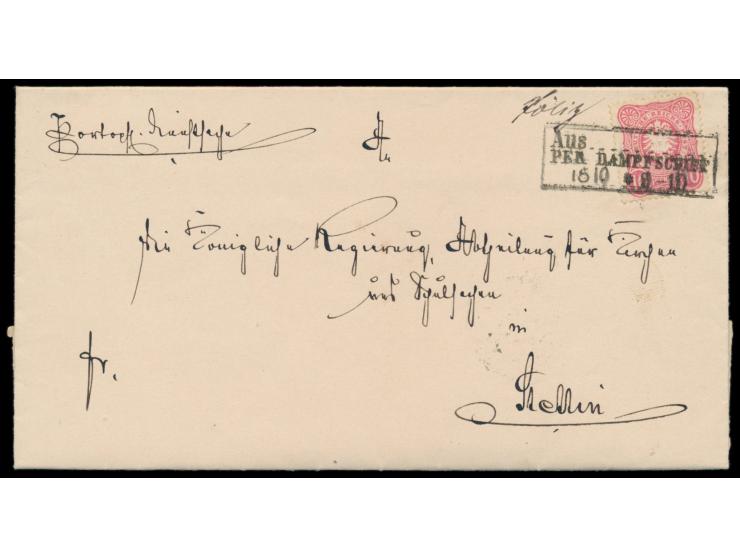 Portopfl. Dienstsache
An
Pölitz
Aus
PER DAMPFSCHIFF
18 10 * 9-10
die Königliche Regierung, Abtheilung für Kirchen
und Schulsachen
in
fr.
Stettin